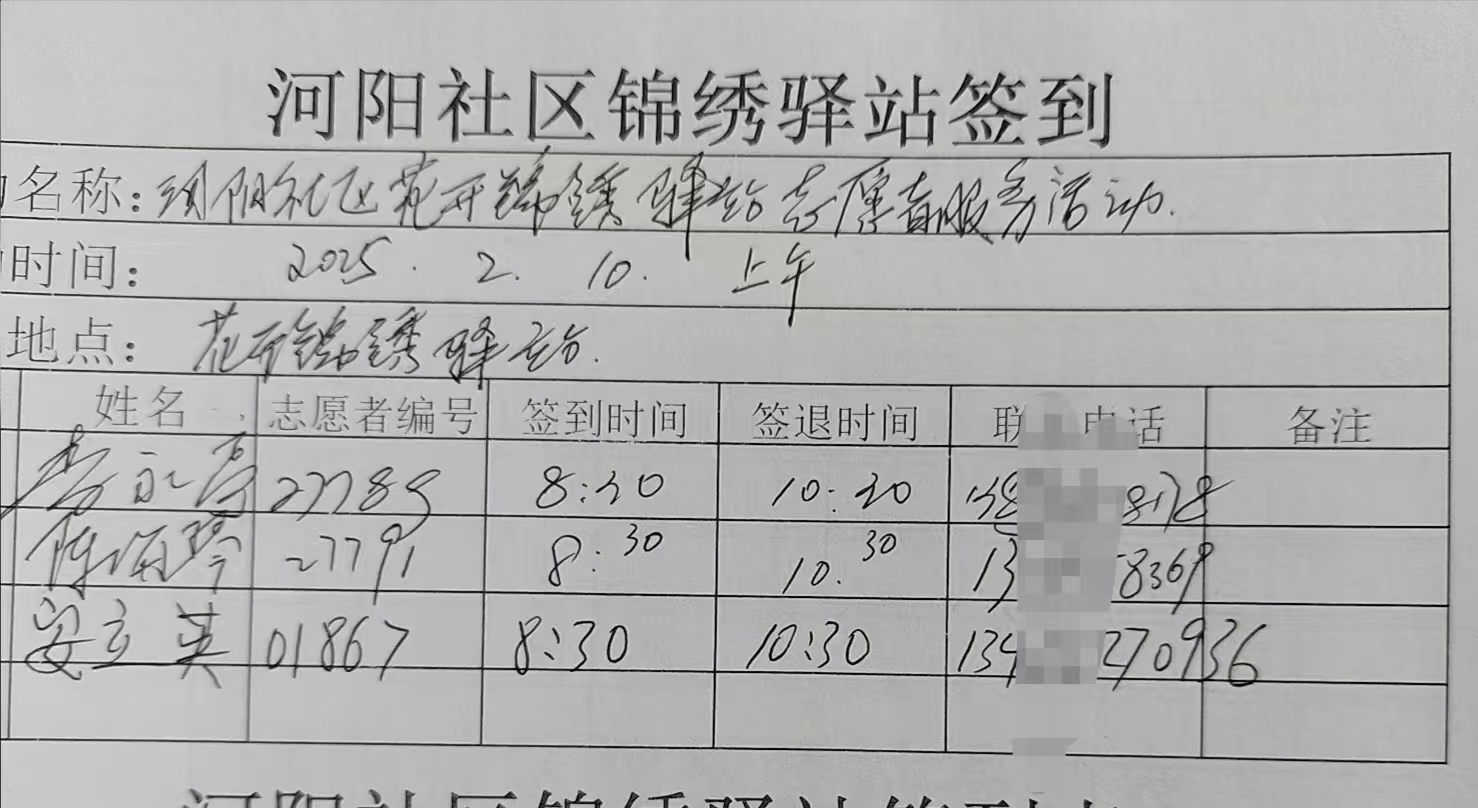 河阳社区锦绣驿站签到
名称：河阳社区花开锦绣驿站志愿者服务活动.
时间： 2025.2.10. 上午
地点： 花开锦绣驿站.
姓名 志愿者编号 签到时间 签退时间 联 电话 备注
永 27789 8:30 10:30 138 8178
陈海琴 27791 8:30 10.30 13 8369
梁立英 01867 8:30 10:30 134 270936
河阳社区锦绣驿站签到